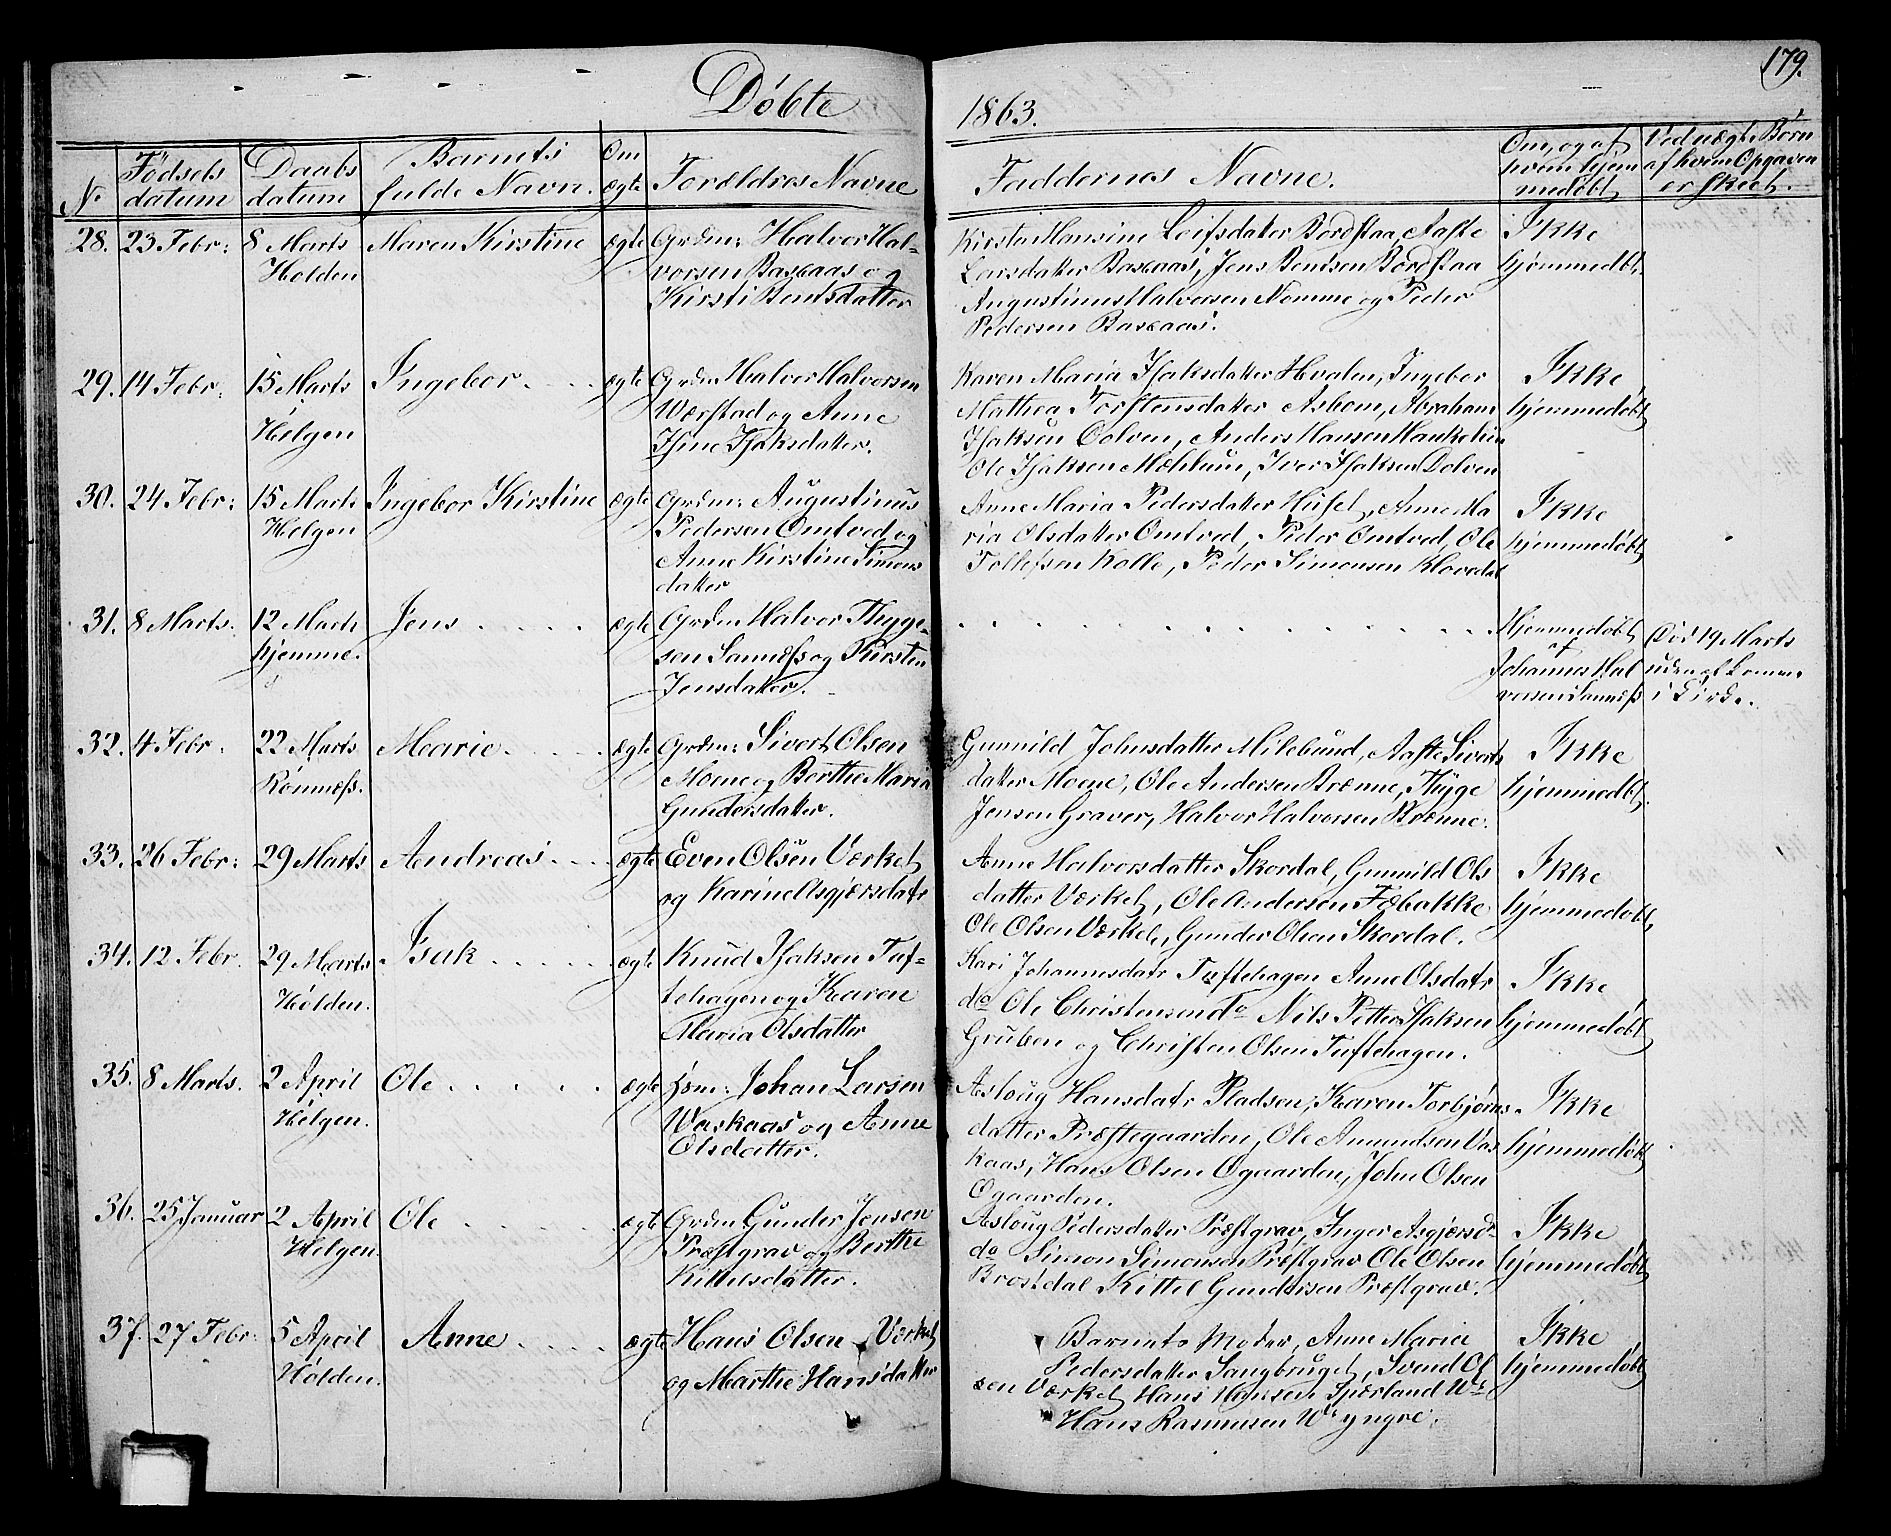 179.
Døbte
1863.
No
Fødsels
datum
Daabs
datum
Barnets
fulde Navn.
Om
ægte
Forældres Navne
Faddernes Navne.
Om, og af
hvem hjem
medøbt
Ved uægte Børn
af hvem Opgaven
er skeet.
28.
23 Febr:
8 Marts
Holden
Maren Kirstine
ægte
Grdm: Halvor Hal-
vorsen Baseaas og
Kirsti Bentsdatter
Hansine Leifsdatter Bordstaa, Aaste
Larsdatter Baseaas, Jens Bentsen Bordstaa
Augustinus Halvorsen Nomme og Peder
Pedersen Baseaas.
Ikke
hjemmedøbt.
29.
14 Febr:
15 Marts
Helgen
Ingebor
ægte
Grdm Halvor Halvorsen
Værstad og Anne
Isaksdatter.
Karen Maria Isaksdatter Hvalen, Ingebor
Mathea Torstensdatter Asbom, Abraham
Isaksen Dolven, Anders Hansen
Ole Isaksen Mæhlum, Iver Isaksen Dolven
Ikke
hjemmedøbt
30.
24 Febr:
15 Marts
Helgen
Ingebor Kirstine
ægte
Grdm: Augustinus
Pedersen Omtved og
Anne Kirstine Simons
datter
Anne Maria Pedersdatter Huset, Anne Ma
ria Olsdatter Omtved, Peder Omtved, Ole
Tollefsen Kolle, Peder Simonsen Klovedal
Ikke
hjemmedøbt
31.
8 Marts.
12 Marts
hjemme.
Jens
ægte
Grdm Halvor Thyge-
sen Sannæss og Kirsten
Jensdatter.
Hjemmedøbt
af
Johannes Hal
vorsen Sannæss
Død 19 Marts
uden at komme
i Kirke.
32.
4 Febr.
22 Marts
Romnæss.
Marie
ægte
Grdm: Sivert Olsen
Moene og Berthe Maria
Gundersdatter.
Gunnild Johnsdatter Milebund, Aaste Siverts
datter Moene, Ole Andersen Brænne, Thyge
Jensen Graver, Halvor Halvorsen Brænne.
Ikke
hjemmedøbt.
33.
26 Febr:
29 Marts
Andreas
ægte
Even Olsen Værket
og Karine Asgjersdatr
Anne Halvorsdatter Skordal, Gunnild Ols
datter Værket, Ole Andersen Fæbakke
Ole Olsen Værket, Gunder Olsen Skordal.
Ikke
hjemmedøbt,
34.
12 Febr.
29 Marts
Holden.
Isak
ægte
Knud Isaksen Tuf-
tehagen og Karen
Maria Olsdatter
Kari Johannesdatr Tuftehagen Anne Olsdatr
do Ole Christensen do Nils Petter Isaksen
Gruben og Christen Olsen Tuftehagen.
Ikke
hjemmedøbt
35.
8 Marts.
2 April
Helgen.
Ole
ægte
Hsm: Johan Larsen
Vaskaas og Anne
Olsdatter.
Asloug Hansdatr Pladsen, Karen Torbjørns-
datter Præstegaarden, Ole Amundsen Vas
kaas, Hans Olsen Ogaarden, John Olsen
Ogaarden.
Ikke
hjemmedøbt
36.
25 Januar
2 April
Helgen.
Ole
ægte
Grdm Gunder Jensen
Præstgrav og Berthe
Kittelsdatter.
Asloug Pedersdatter Præstgrav, Inger Asgjersd-
do Simon Simonsen Præstgrav Ole Olsen
Brostdal Kittel Gundersen Præstgrav.
Ikke
hjemmedøbt
37.
27 Febr.
5 April
Holden.
Anne
ægte
Hans Olsen Værket
og Marthe Hansdatter
Barnets Moder, Anne Maria
Pedersdatter Saugbruget, Svend Ol
sen Værket Hans Hansen Sperland
Hans Rasmusen yngre.
Ikke
hjemmedøbt